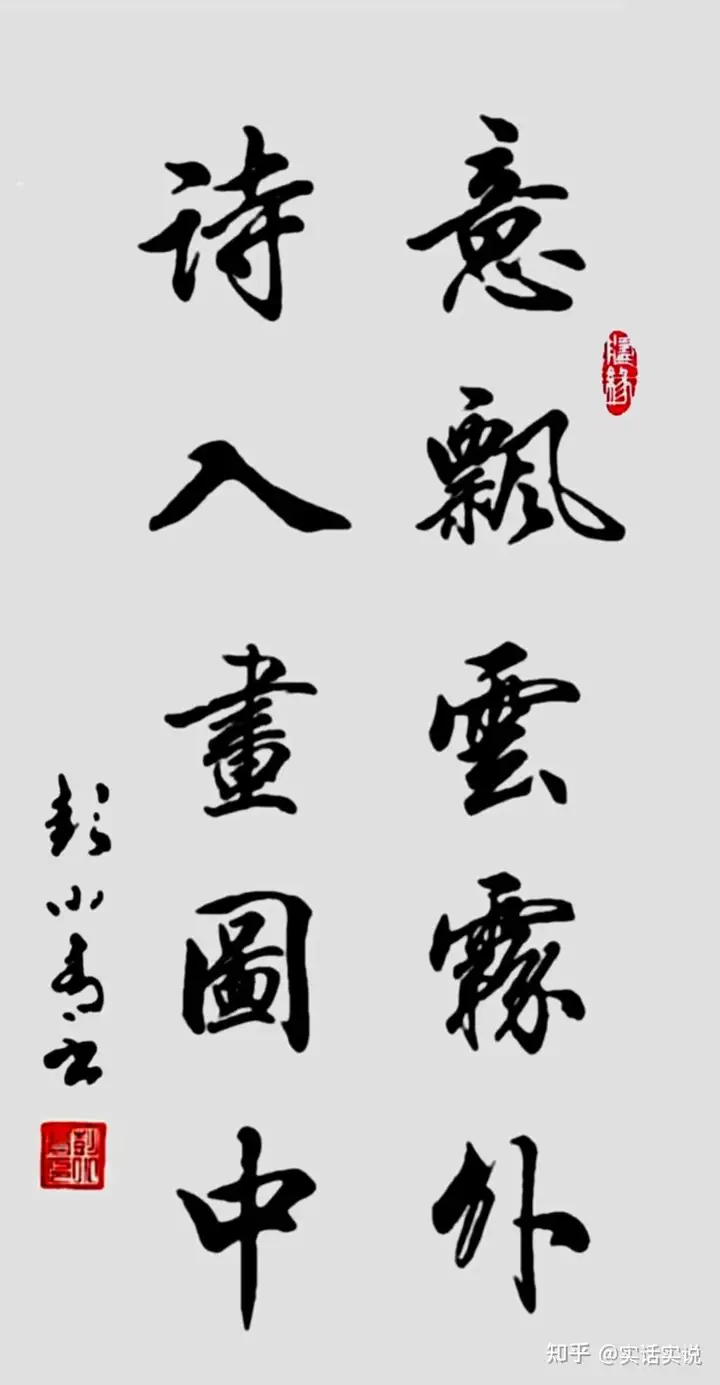 意飄雲霧外
詩入畫圖中
彭小
知乎 @实话实说